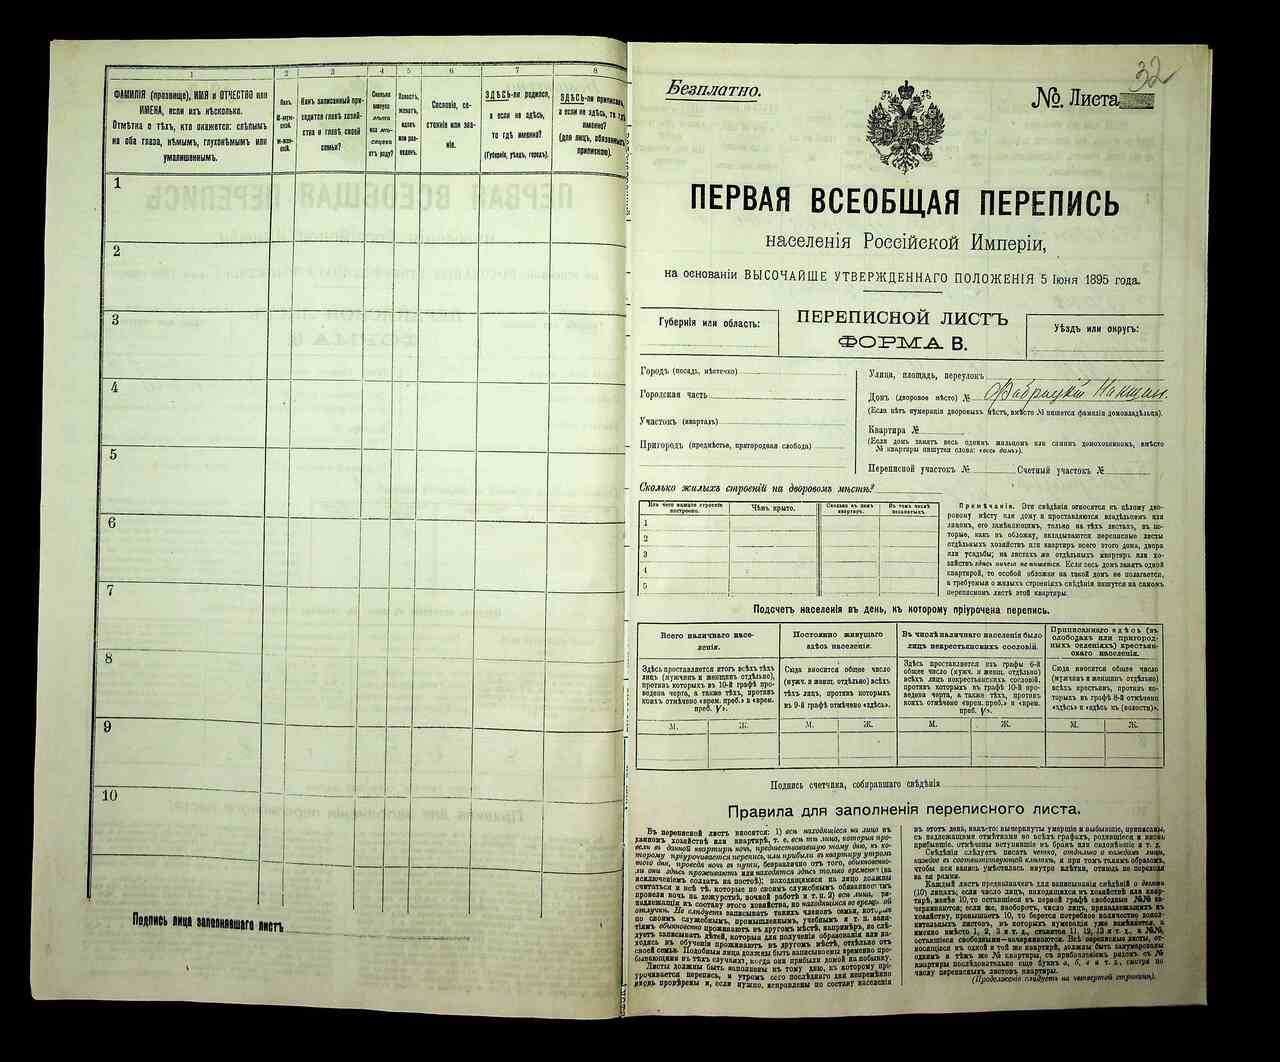 1
2
3
4
5
6
7
8
ФАМИЛІЯ (прозвище), ИМЯ и ОТЧЕСТВО или
ИМЕНА, если ихъ нѣсколько.
Отмѣтка о тѣхъ, кто окажется: слѣпымъ
на оба глаза, нѣмымъ, глухонѣмымъ или
умалишеннымъ.
Полъ.
М-муж-
ской.
Ж-жен-
скій.
Какъ записанный при-
ходится главѣ хозяй-
ства и главѣ своей
семьи?
Сколько
минуло
лѣтъ
или мѣ-
сяцевъ
отъ роду?
Холостъ,
женатъ,
вдовъ
или раз-
веденъ.
Сословіе, со-
стояніе или зва-
ніе.
ЗДѢСЬ-ли родился,
а если не здѣсь,
то гдѣ именно?
(Губернія, уѣздъ, городъ).
ЗДѢСЬ-ли приписанъ,
а если не здѣсь, то гдѣ
именно?
(для лицъ, обязанныхъ
припискою).
1
2
3
4
5
6
7
8
9
10
Подпись лица заполнявшаго листъ
32
Безплатно.
№ Листа
ПЕРВАЯ ВСЕОБЩАЯ ПЕРЕПИСЬ
населенія Россійской Имперіи,
на основаніи ВЫСОЧАЙШЕ УТВЕРЖДЕННАГО ПОЛОЖЕНІЯ 5 Іюня 1895 года.
Губернія или область:
ПЕРЕПИСНОЙ ЛИСТЪ
ФОРМА В.
Уѣздъ или округъ:
Городъ (посадъ, мѣстечко)
Городская часть
Участокъ (кварталъ)
Пригородъ (предмѣстье, пригородная слобода)
Улица, площадь, переулокъ
Домъ (дворовое мѣсто) №
(Если нѣтъ нумераціи дворовыхъ мѣстъ, вмѣсто № пишется фамилія домовладѣльца).
Квартира №
(Если домъ занятъ весь однимъ жильцомъ или самимъ домохозяиномъ, вмѣсто
№ квартиры пишутся слова: «весь домъ»).
Переписной участокъ № Счетный участокъ №
Сколько жилыхъ строеній на дворовомъ мѣстѣ?
Изъ чего каждое строеніе
построено.
Чѣмъ крыто.
Сколько въ немъ
квартиръ.
Въ томъ числѣ
незанятыхъ.
1
2
3
4
5
Примѣчанія. Эти свѣдѣнія относятся къ цѣлому дво-
ровому мѣсту или дому и проставляются владѣльцемъ или
лицомъ, его замѣняющимъ, только на тѣхъ листахъ, въ ко-
торые, какъ въ обложку, вкладываются переписные листы
отдѣльныхъ хозяйствъ или квартиръ всего этого дома, двора
или усадьбы; на листахъ же отдѣльныхъ квартиръ или хо-
зяйствъ здѣсь ничего не пишется. Если весь домъ занятъ одной
квартирой, то особой обложки на такой домъ не полагается,
а требуемыя о жилыхъ строеніяхъ свѣдѣнія пишутся на самомъ
переписномъ листѣ этой квартиры.
Подсчетъ населенія въ день, къ которому пріурочена перепись.
Всего наличнаго насе-
ленія.
Постоянно живущаго
здѣсь населенія.
Въ числѣ наличнаго населенія было
лицъ некрестьянскихъ сословій.
Приписаннаго здѣсь (въ
слободахъ или пригород-
ныхъ селеніяхъ) крестьян-
скаго населенія.
Здѣсь проставляется итогъ всѣхъ тѣхъ
лицъ (мужчинъ и женщинъ отдѣльно),
противъ которыхъ въ 10-й графѣ про-
ведена черта, а также тѣхъ, противъ
коихъ отмѣчено «врем. преб.» и «врем.
преб. V».
Сюда вносится общее число
(мужч. и женщ. отдѣльно) всѣхъ
тѣхъ лицъ, противъ которыхъ
въ 9-й графѣ отмѣчено «здѣсь».
Здѣсь проставляется изъ графы 6-й
общее число (мужч. и женщ. отдѣльно)
всѣхъ лицъ некрестьянскихъ сословій,
противъ которыхъ въ графѣ 10-й про-
ведена черта, а также тѣхъ, противъ
коихъ отмѣчено «врем. преб.» и «врем.
преб. V».
Сюда вносится общее число
(мужчинъ и женщинъ отдѣльно)
всѣхъ крестьянъ, противъ ко-
торыхъ въ графѣ 8-й отмѣчено
«здѣсь» и «здѣсь къ (волости)».
М. Ж. М. Ж. М. Ж. М. Ж.
Подпись счетчика, собиравшаго свѣдѣнія
Правила для заполненія переписного листа.
Въ переписной листъ вносятся: 1) всѣ находящіеся на лицо въ
данномъ хозяйствѣ или квартирѣ, т. е. всѣ тѣ лица, которыя про-
вели въ данной квартирѣ ночь, предшествовавшую тому дню, къ ко-
торому пріурочивается перепись, или прибыли въ квартиру утромъ
этого дня, проведя ночь въ пути, безразлично отъ того, обыкновенно-
ли они здѣсь проживаютъ или находятся здѣсь только временно (за
исключеніемъ солдатъ на постоѣ); находящимися на лицо должны
считаться и всѣ тѣ, которые по своимъ служебнымъ обязанностямъ
провели ночь на дежурствѣ, ночной работѣ и т. п. 2) всѣ лица, при-
надлежащія къ составу этого хозяйства, но находящіяся во временной
отлучкѣ. Не слѣдуетъ записывать такихъ членовъ семьи, которые
по своимъ служебнымъ, промышленнымъ, учебнымъ и т. п. заня-
тіямъ обыкновенно проживаютъ въ другомъ мѣстѣ, напримѣръ, не слѣ-
дуетъ записывать дѣтей, которыя для полученія образованія или на-
ходясь въ обученіи проживаютъ въ другомъ мѣстѣ, отдѣльно отъ
своей семьи. Подобныя лица должны быть записываемы временно пре-
бывающими въ тѣхъ случаяхъ, когда они прибыли домой на побывку.
Листы должны быть наполнены къ тому дню, къ которому прі-
урочивается перепись, и утромъ сего послѣдняго дня непремѣнно
вновь провѣрены и, если нужно, исправлены по составу населенія
въ этотъ день, какъ-то: вычеркнуты умершіе и выбывшіе, приписаны,
съ надлежащими отмѣтками во всѣхъ графахъ, родившіеся и вновь
прибывшіе, отмѣчены вступившіе въ бракъ или овдовѣвшіе и т. д.
Свѣдѣнія слѣдуетъ писать четко, отдѣльно о каждомъ лицѣ,
каждое въ соотвѣтствующей клѣткѣ, и при томъ такимъ образомъ,
чтобы вся запись умѣстилась внутри клѣтки, отнюдь не переходя
за ея рамки.
Каждый листъ предназначенъ для записыванія свѣдѣній о десяти
(10) лицахъ; если число лицъ, находящихся въ хозяйствѣ или квар-
тирѣ, менѣе 10, то оставшіеся въ первой графѣ свободные №№ за-
черкиваются; если же, наоборотъ, число лицъ, принадлежащихъ къ
хозяйству, превышаетъ 10, то берется потребное количество допол-
нительныхъ листовъ, въ которыхъ нумерація уже измѣняется, а
именно вмѣсто 1, 2, 3 и т. д., ставятся 11, 12, 13 и т. д., а №№,
оставшіеся свободными—зачеркиваются. Всѣ переписные листы, от-
носящіеся къ одной и той же квартирѣ, должны быть занумерованы
однимъ и тѣмъ же № квартиры, съ прибавленіемъ рядомъ съ №
квартиры послѣдовательно еще буквъ а, б, в и т. д., смотря по
числу переписныхъ листовъ квартиры.
(Продолженіе слѣдуетъ на четвертой страницѣ).